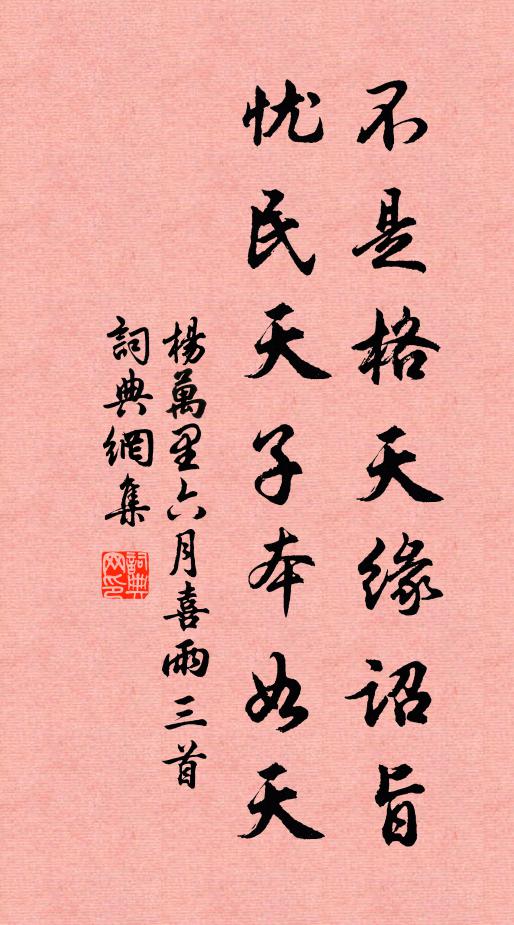 不是格天缘詔旨
忧民天子本如天
楊萬里六月喜雨三首
詞典網集
詞典网印